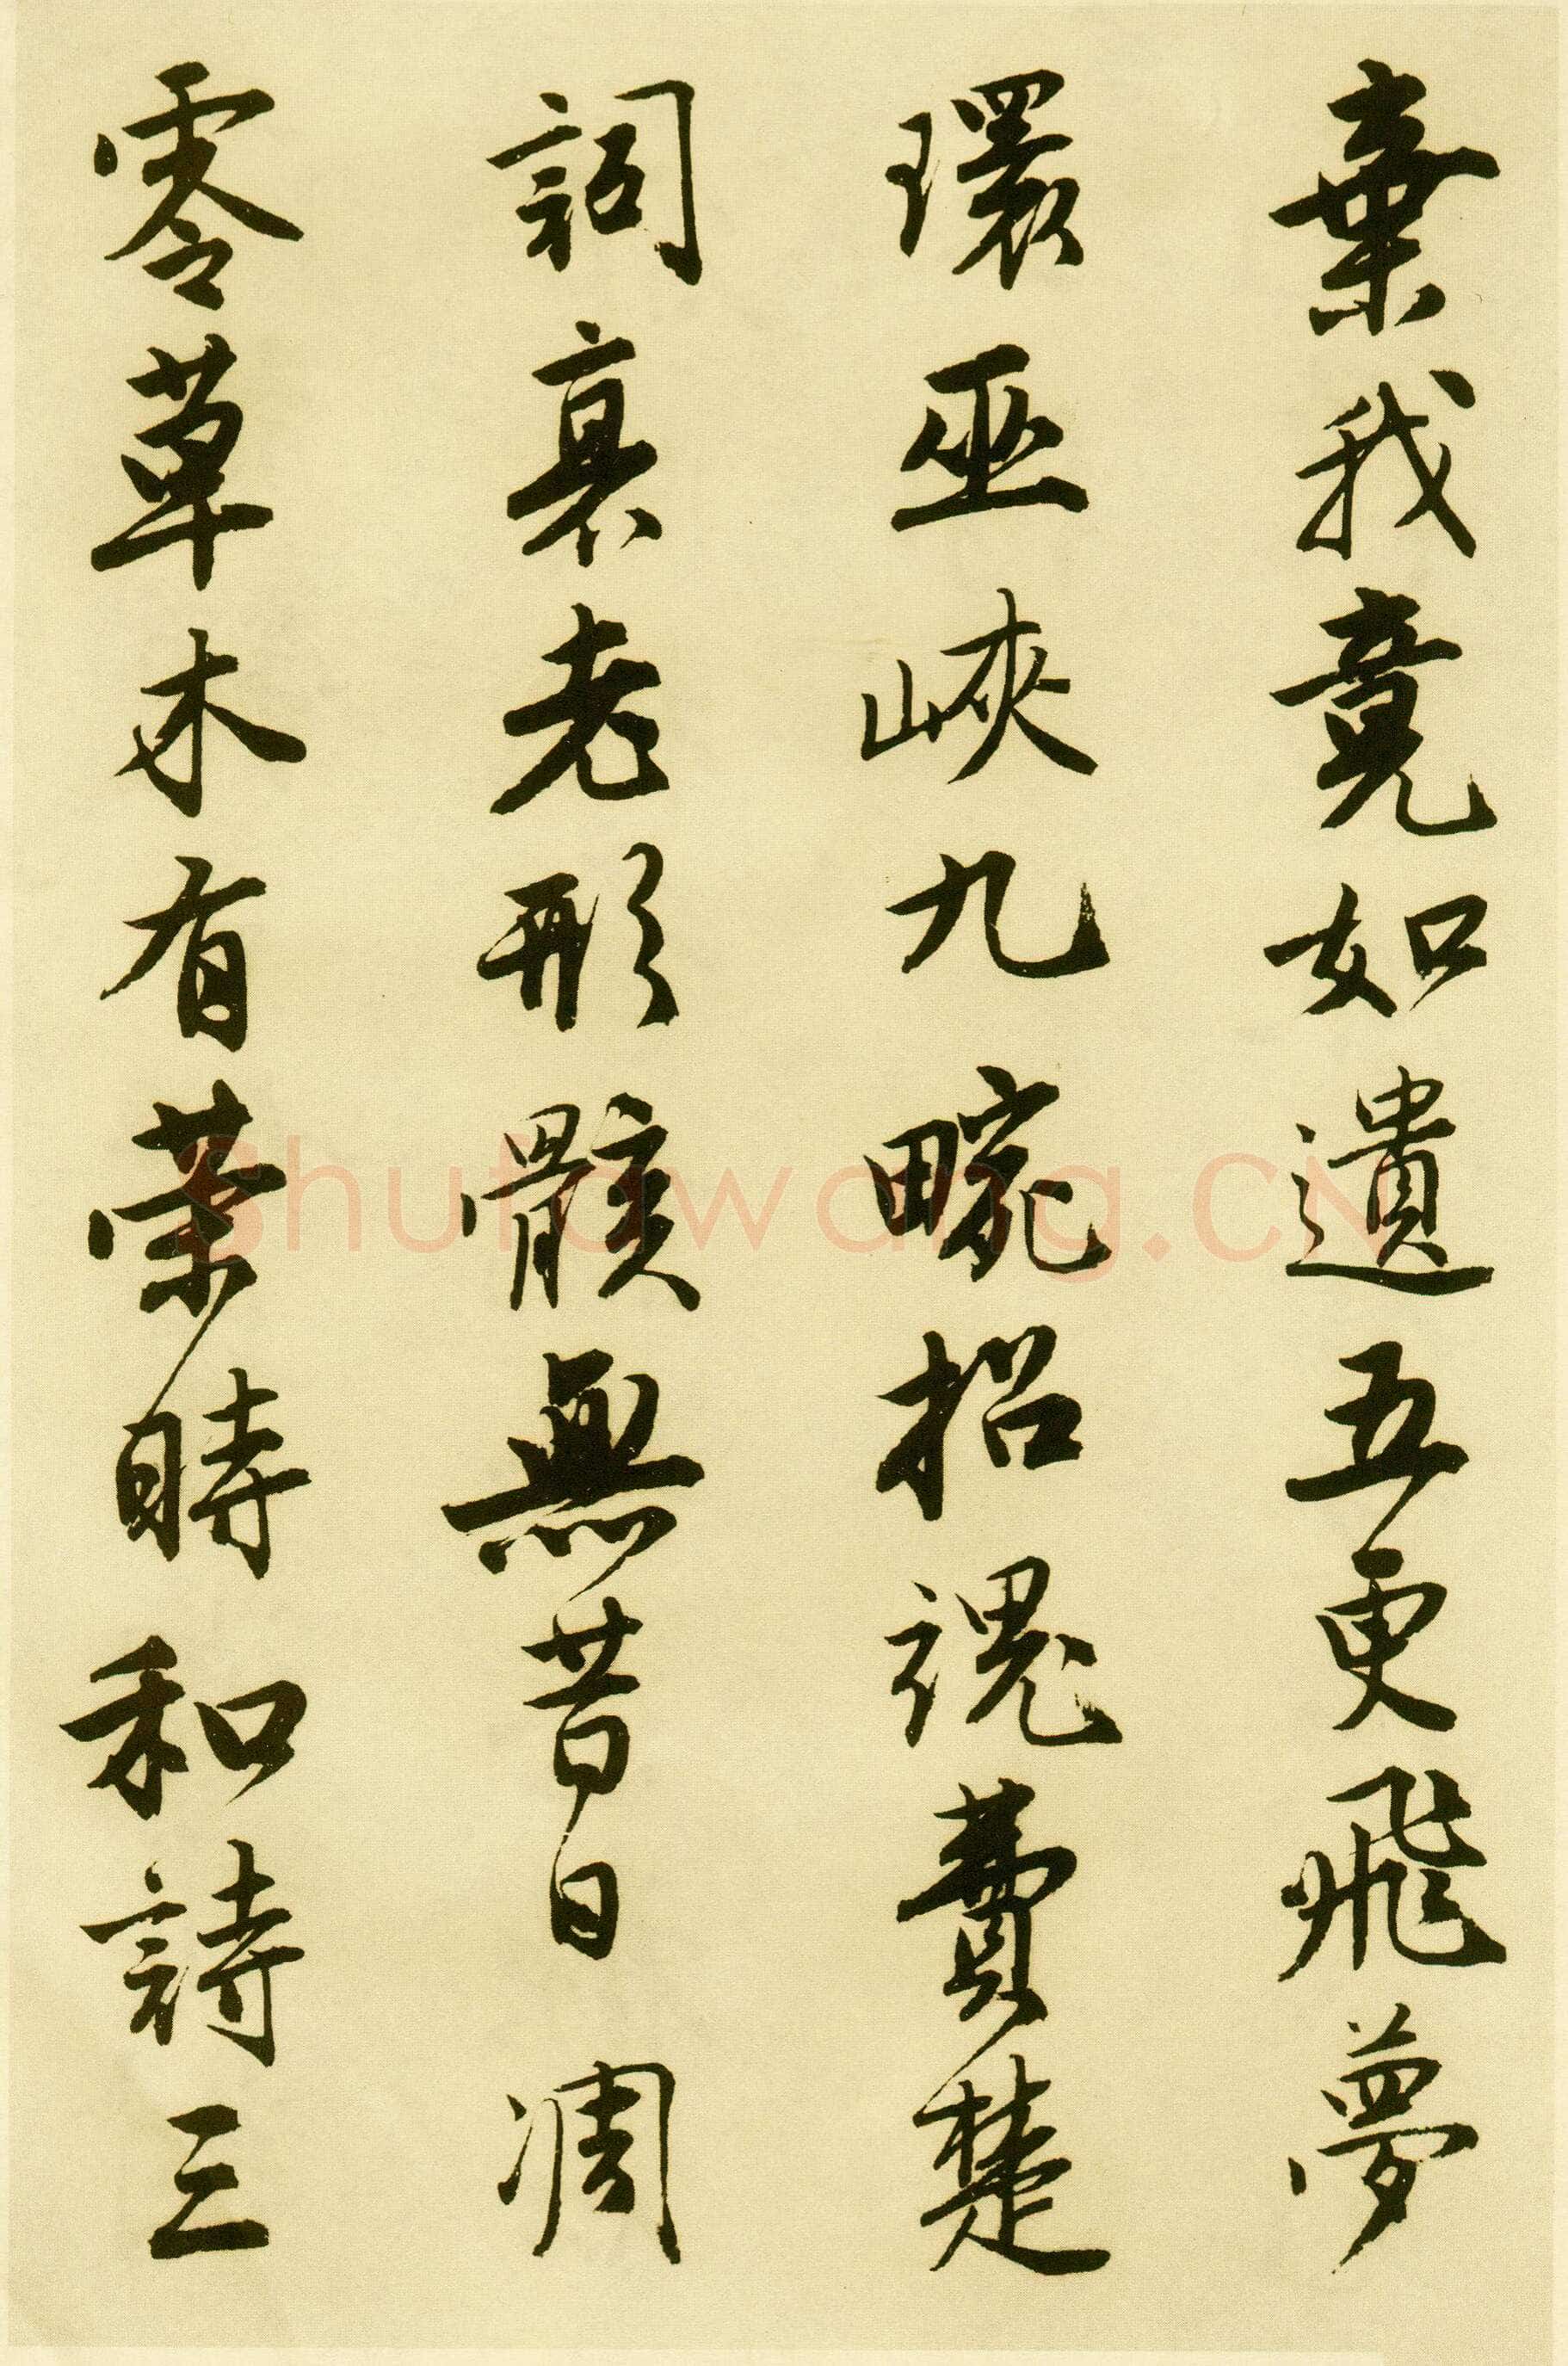 棄我竟如遺五更飛夢
環巫峽九畹招魂費楚
詞衰老形骸無昔日凋
零草木有榮時和詩三
Shufawang.CN